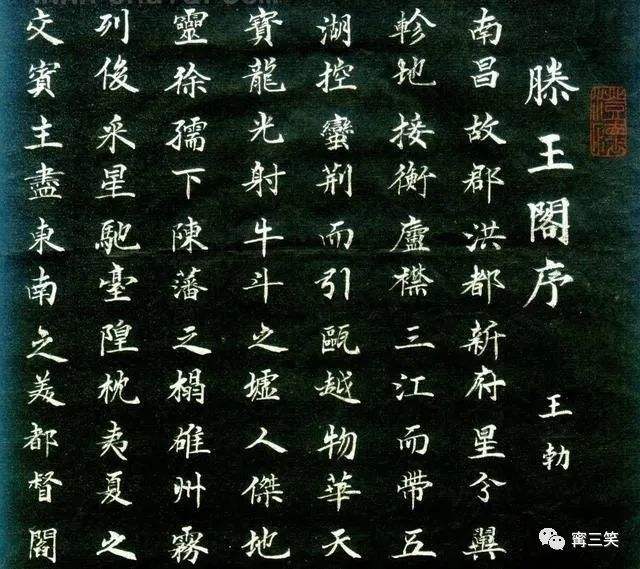 滕王閣序 王勃
南昌故郡洪都新府星分翼
軫地接衡廬襟三江而帶五
湖控蠻荆而引甌越物華天
寶龍光射牛斗之墟人傑地
靈徐孺下陳藩之榻雄州霧
列俊采星馳臺隍枕夷夏之
交賓主盡東南之美都督閻
寗三笑